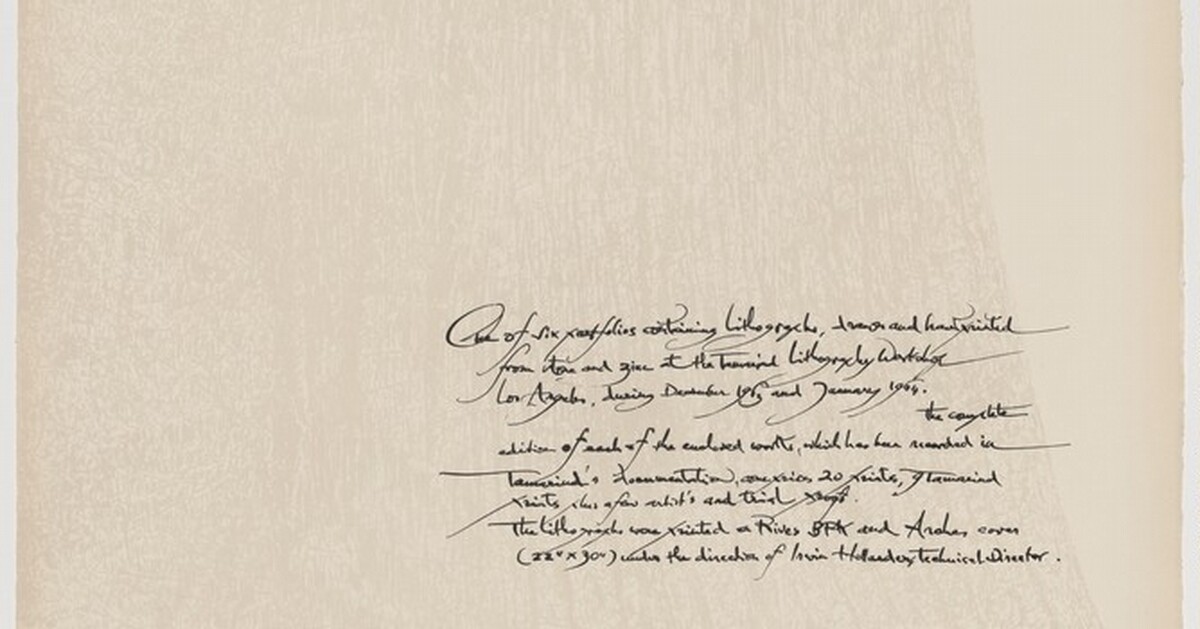 One of six portfolios containing lithographs, drawn and hand printed
from stone and zinc at the Tamarind Lithography Workshop
Los Angeles, during December 1963 and January 1964.
the complete
edition of each of the enclosed works, which has been recorded in
Tamarind's documentation, comprises 20 prints, 9 Tamarind
prints plus a few artist's and trial proofs.
The lithographs were printed on Rives BFK and Arches cover
(22" x 30") under the direction of Irwin Hollander, Technical Director.